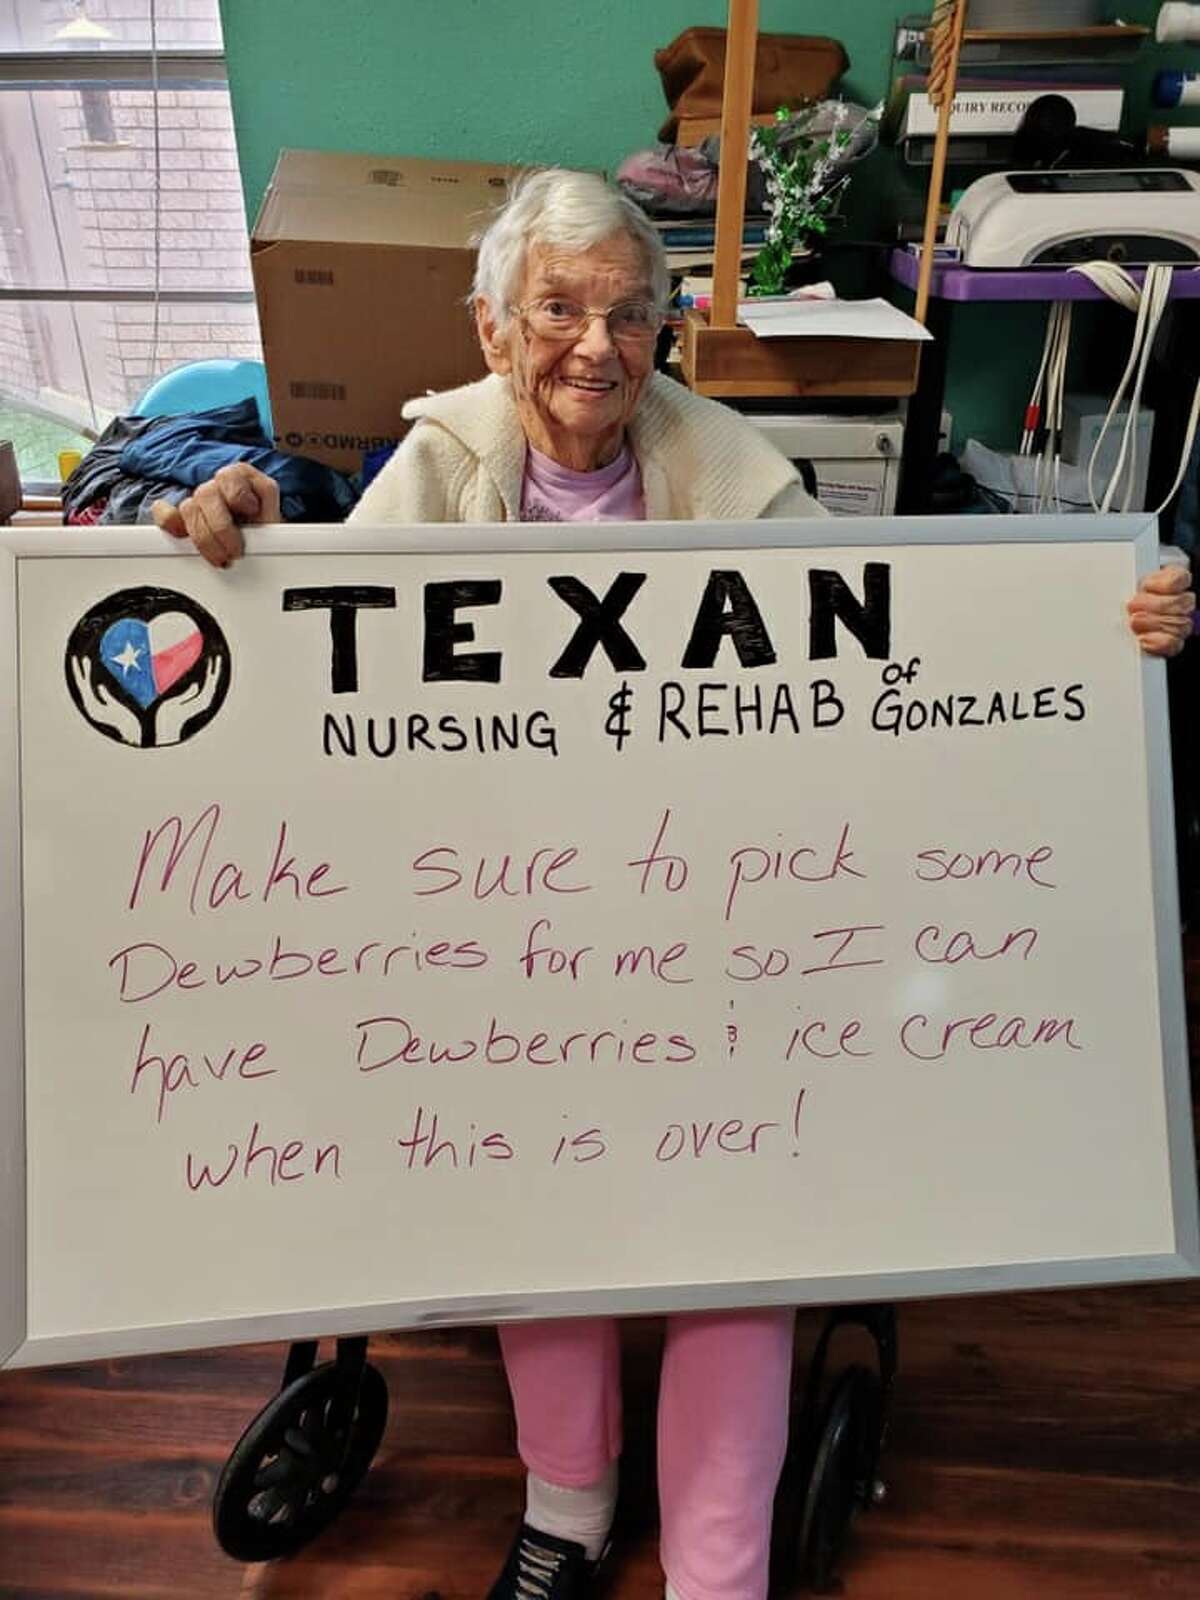 QUIRY RECO
TEXAN
NURSING & REHAB of GONZALES
Make sure to pick some
Dewberries for me so I can
have Dewberries & ice cream
when this is over!